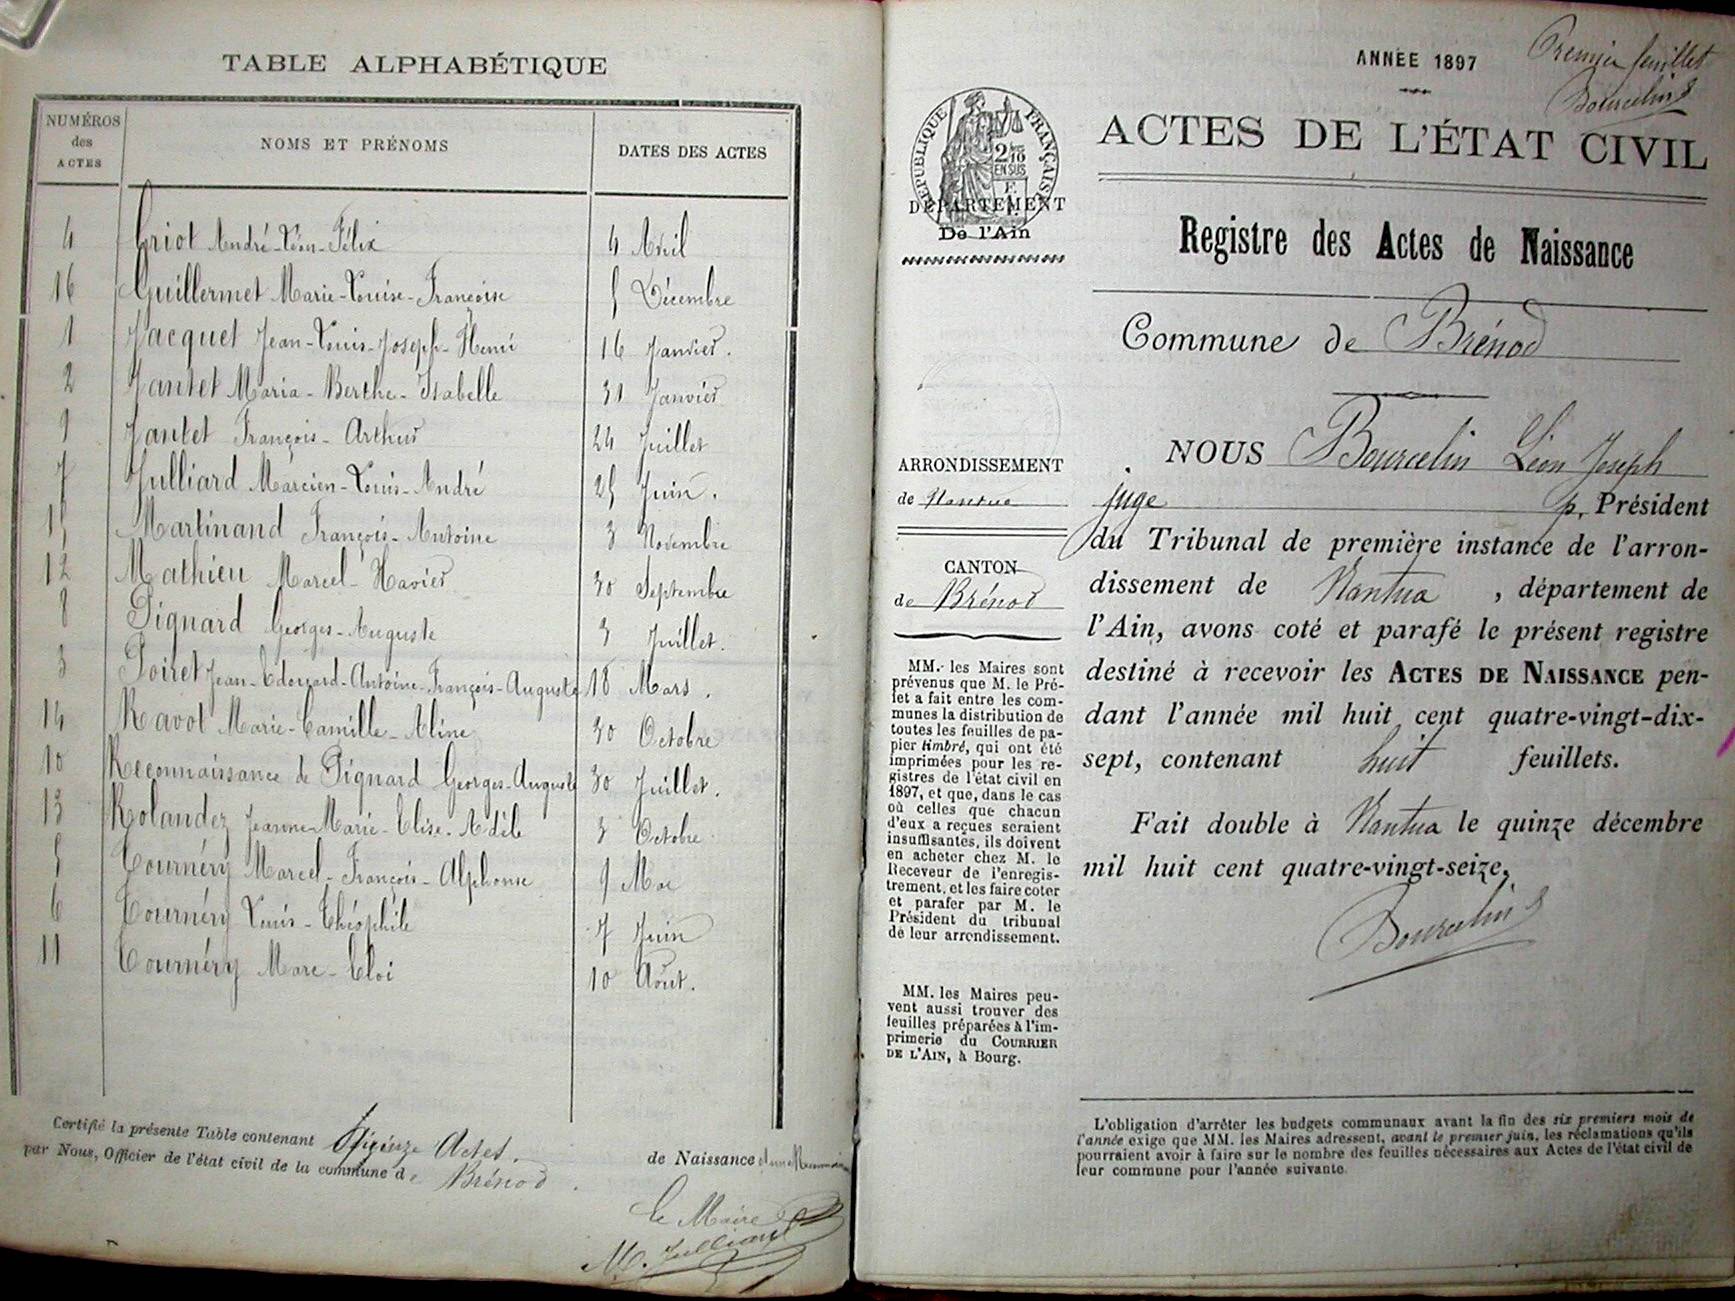 TABLE ALPHABÉTIQUE
NUMÉROS des ACTES
NOMS ET PRÉNOMS
DATES DES ACTES
4 Griot André-Léon-Félix 4 Avril
16 Guillermet Marie-Louise-Françoise 5 Décembre
1 Jacquet Jean-Louis-Joseph-Henri 16 Janvier.
2 Jantet Maria-Berthe-Isabelle 31 Janvier
9 Jantet François-Arthur 24 Juillet
7 Julliard Marcien-Louis-André 25 Juin.
15 Martinand François-Antoine 3 Novembre
12 Mathieu Marcel-Xavier 30 Septembre
8 Pignard Georges-Auguste 3 Juillet.
3 Poiret Jean-Edouard-Antoine-François-Auguste 18 Mars.
14 Ravot Marie-Camille-Aline 30 Octobre
10 Reconnaissance de Pignard Georges-Auguste 30 Juillet.
13 Rolandez Jeanne-Marie-Elise-Adèle 3 Octobre
5 Tournéry Marcel-François-Alphonse 9 Mai
6 Tournéry Louis-Théophile 7 Juin
11 Tournéry Marc-Eloi 10 Août.
Certifié la présente Table contenant Actes. de Naissance
par Nous, Officier de l'état civil de la commune de Brénod.
Le Maire
M. Julliard
ANNÉE 1897
Premier feuillet
Bourcelin
RÉPUBLIQUE FRANÇAISE
2/10 EN SUS
DÉPARTEMENT
De l'Ain
ARRONDISSEMENT
de Nantua
CANTON
de Brénod
MM. les Maires sont
prévenus que M. le Pré-
fet a fait entre les com-
munes la distribution de
toutes les feuilles de pa-
pier timbré, qui ont été
imprimées pour les re-
gistres de l'état civil en
1897, et que, dans le cas
où celles que chacun
d'eux a reçues seraient
insuffisantes, ils doivent
en acheter chez M. le
Receveur de l'enregis-
trement, et les faire coter
et parafer par M. le
Président du tribunal
de leur arrondissement.
MM. les Maires peu-
vent aussi trouver des
feuilles préparées à l'im-
primerie du COURRIER
DE L'AIN, à Bourg.
ACTES DE L'ÉTAT CIVIL
Registre des Actes de Naissance
Commune de Brénod
NOUS Bourcelin Léon Joseph
juge p. Président
du Tribunal de première instance de l'arron-
dissement de Nantua, département de
l'Ain, avons coté et parafé le présent registre
destiné à recevoir les ACTES DE NAISSANCE pen-
dant l'année mil huit cent quatre-vingt-dix-
sept, contenant huit feuillets.
Fait double à Nantua le quinze décembre
mil huit cent quatre-vingt-seize,
Bourcelin
L'obligation d'arrêter les budgets communaux avant la fin des six premiers mois de
l'année exige que MM. les Maires adressent, avant le premier juin, les réclamations qu'ils
pourraient avoir à faire sur le nombre des feuilles nécessaires aux Actes de l'état civil de
leur commune pour l'année suivante.